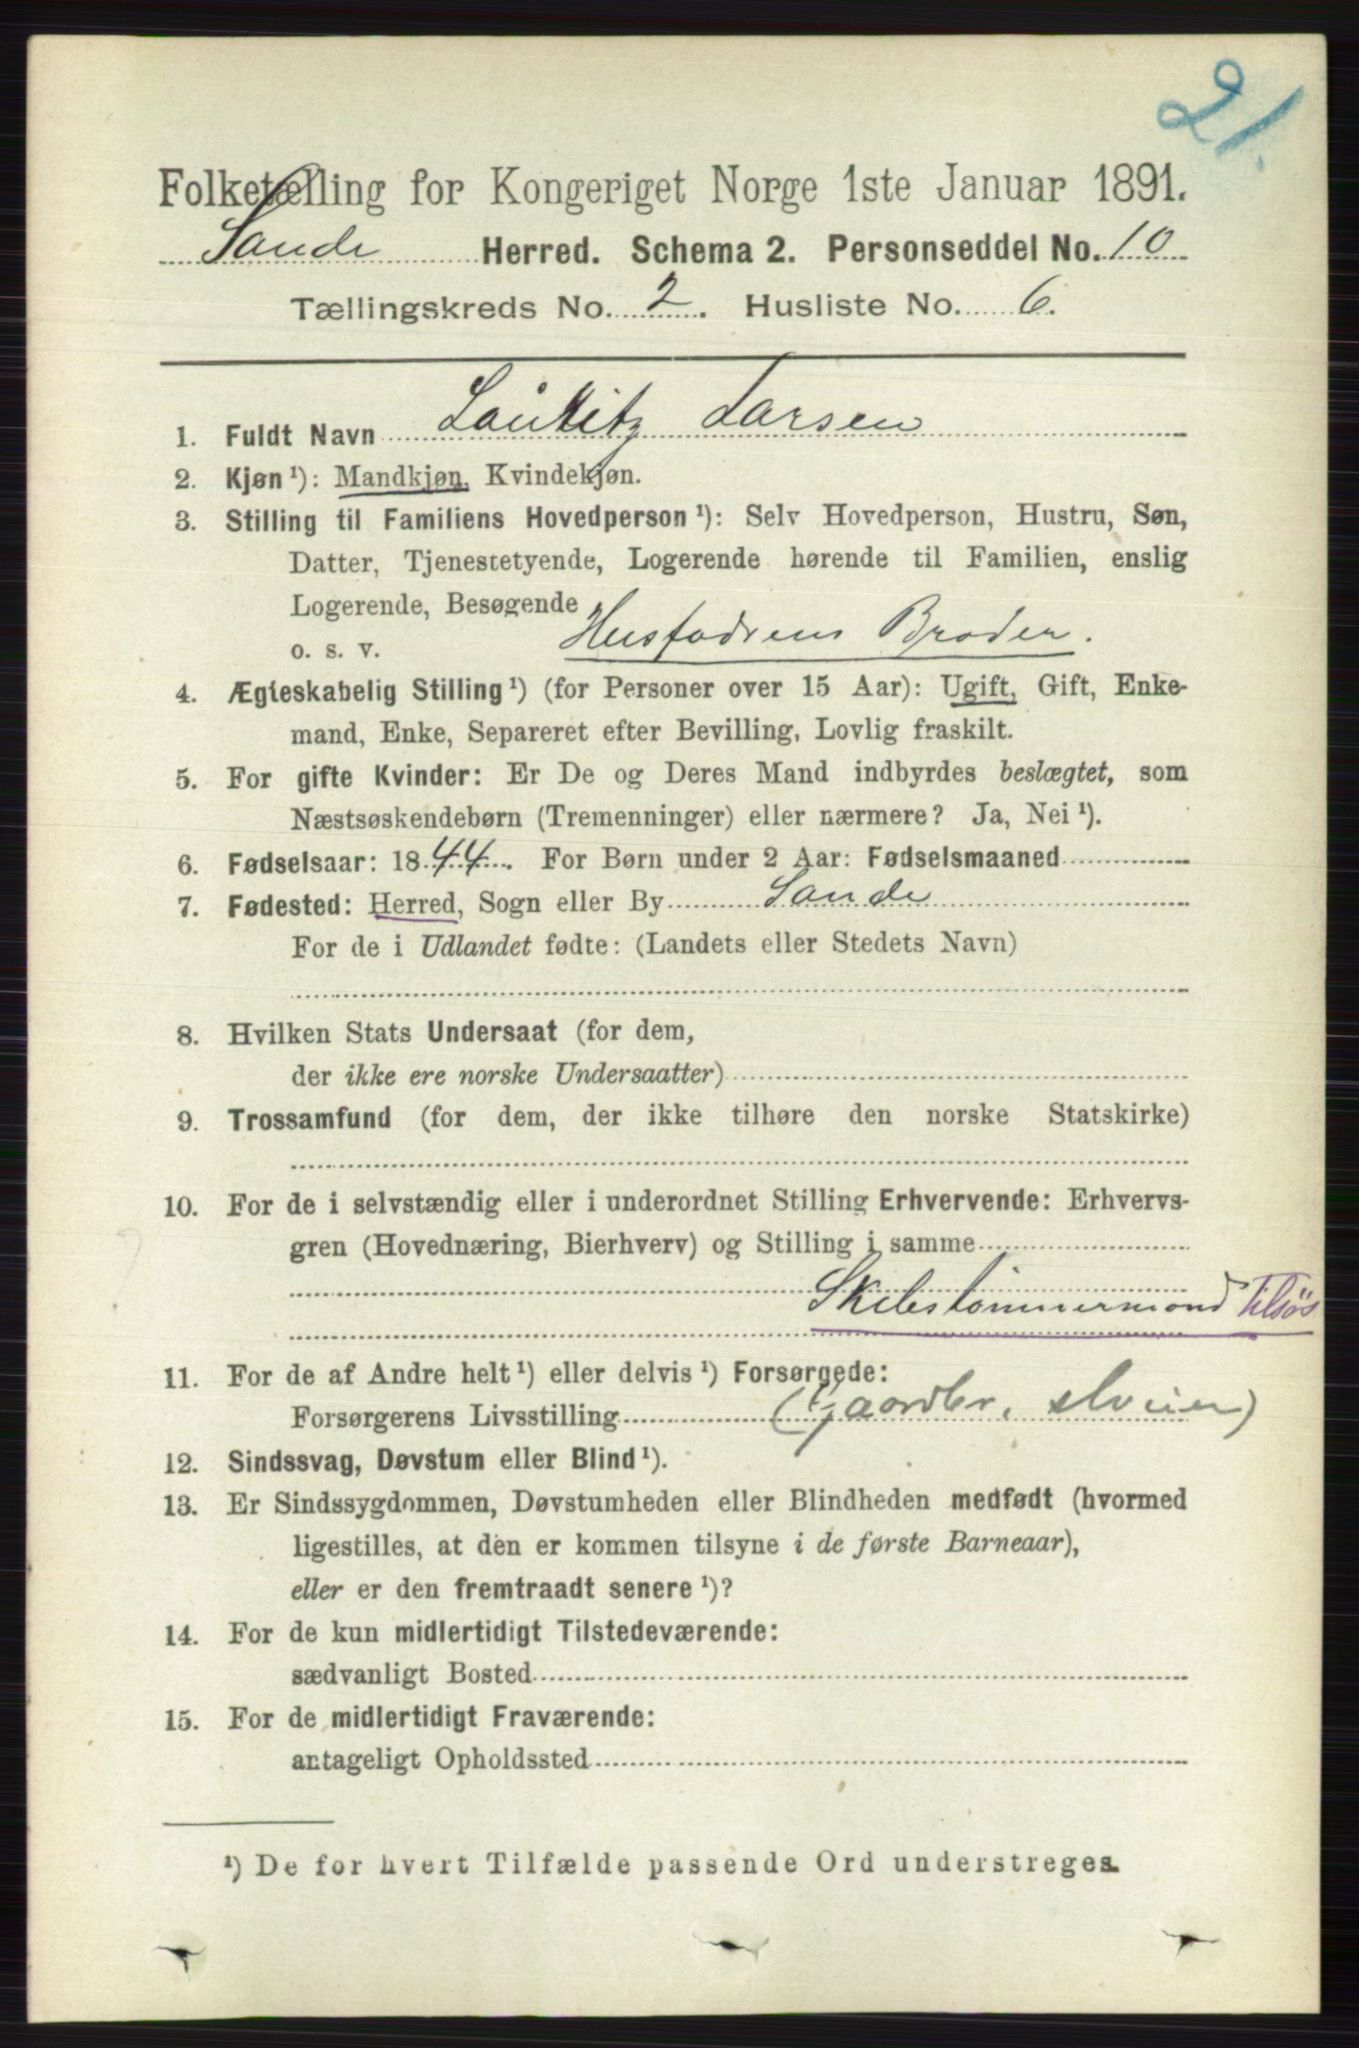 21.
Folketælling for Kongeriget Norge 1ste Januar 1891.
Sande Herred. Schema 2. Personseddel No. 10
Tællingskreds No. 2. Husliste No. 6.
1. Fuldt Navn Lauritz Larsen
2. Kjøn ¹): Mandkjøn, Kvindekjøn.
3. Stilling til Familiens Hovedperson ¹): Selv Hovedperson, Hustru, Søn,
Datter, Tjenestetyende, Logerende hørende til Familien, enslig
Logerende, Besøgende
o. s. v. Husfadrens Broder.
4. Ægteskabelig Stilling ¹) (for Personer over 15 Aar): Ugift, Gift, Enke-
mand, Enke, Separeret efter Bevilling, Lovlig fraskilt.
5. For gifte Kvinder: Er De og Deres Mand indbyrdes beslægtet, som
Næstsøskendebørn (Tremenninger) eller nærmere? Ja, Nei ¹).
6. Fødselsaar: 1844. For Børn under 2 Aar: Fødselsmaaned
7. Fødested: Herred, Sogn eller By Sande
For de i Udlandet fødte: (Landets eller Stedets Navn)
8. Hvilken Stats Undersaat (for dem,
der ikke ere norske Undersaatter)
9. Trossamfund (for dem, der ikke tilhøre den norske Statskirke)
10. For de i selvstændig eller i underordnet Stilling Erhvervende: Erhvervs-
gren (Hovednæring, Bierhverv) og Stilling i samme
Skibstømmermand tilsøs
11. For de af Andre helt ¹) eller delvis ¹) Forsørgede:
Forsørgerens Livsstilling (Gaardbr, selveier)
12. Sindssvag, Døvstum eller Blind ¹).
13. Er Sindssygdommen, Døvstumheden eller Blindheden medfødt (hvormed
ligestilles, at den er kommen tilsyne i de første Barneaar),
eller er den fremtraadt senere ¹)?
14. For de kun midlertidigt Tilstedeværende:
sædvanligt Bosted
15. For de midlertidigt Fraværende:
antageligt Opholdssted
¹) De for hvert Tilfælde passende Ord understreges.